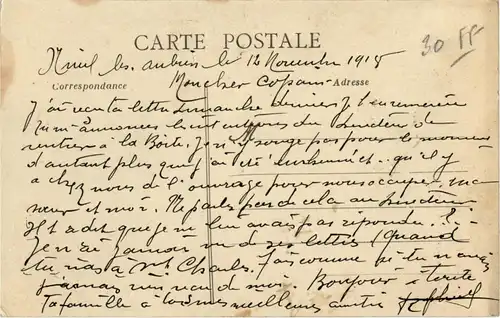 CARTE POSTALE
30 FF
Nueil les aubiers le 12 Novembre 1915
Correspondance
Mon cher Copain
Adresse
J'ai reçu ta lettre dimanche dernier je t'en remercie
Tu m'annonces du directeur de
rentrer à la Boîte. Je n'y songe pas pour le moment
d'autant plus que j'ai été qu'il y
a chez nous de l'ouvrage pour nous occuper ma
sœur et moi. Ne parle pas de cela au directeur
il a dit que je ne lui avais pas répondu.
Je n'ai jamais vu de ses lettres (Quand
tu iras à St Charles. Fais comme si tu n'avais
jamais rien vu de moi. Bonjour à toute
ta famille à toi mes meilleures amitiés